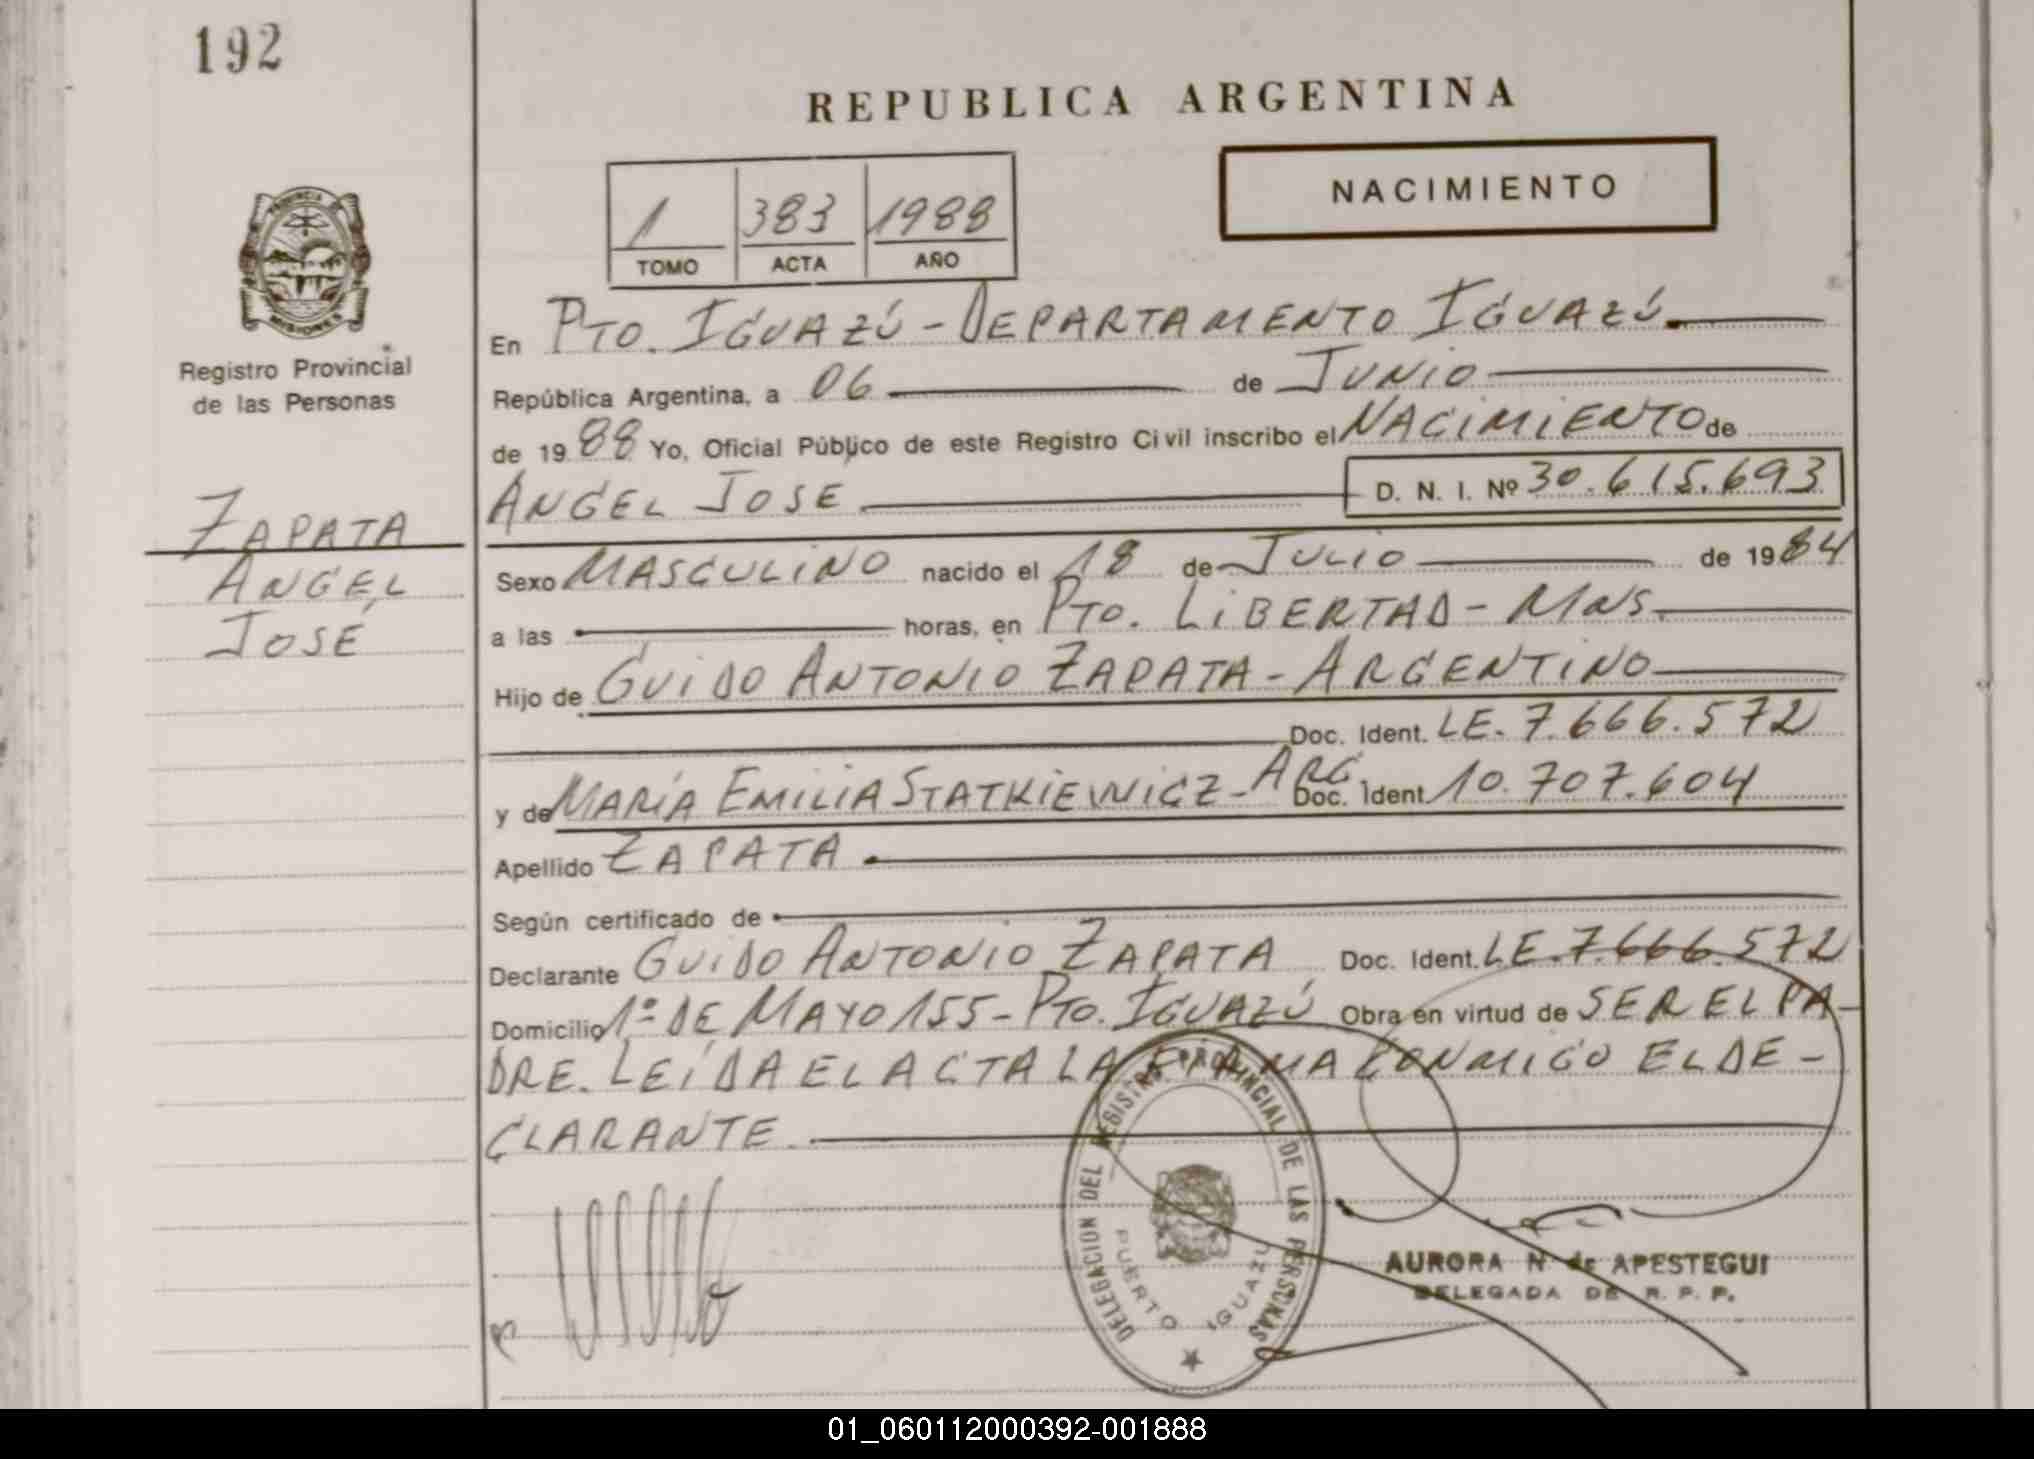 192
REPUBLICA ARGENTINA
NACIMIENTO
1 383 1988
TOMO ACTA AÑO
PROVINCIA DE
MISIONES
Registro Provincial
de las Personas
ZAPATA
ANGEL
JOSÉ
En PTO. IGUAZÚ - DEPARTAMENTO IGUAZÚ.
República Argentina, a 06 de JUNIO
de 1988 Yo, Oficial Público de este Registro Civil inscribo el NACIMIENTO de
ANGEL JOSE D. N. I. Nº 30.615.693
Sexo MASCULINO nacido el 18 de JULIO de 1984
a las horas, en PTO. LIBERTAD - MNS.
Hijo de GUIDO ANTONIO ZAPATA - ARGENTINO
Doc. Ident. LE. 7.666.572
y de MARÍA EMILIA STATKIEWICZ - ARG. Doc. Ident 10.707.604
Apellido ZAPATA
Según certificado de
Declarante GUIDO ANTONIO ZAPATA Doc. Ident. LE. 7.666.572
Domicilio 1º DE MAYO 155 - PTO. IGUAZÚ Obra en virtud de SER EL PA-
DRE. LEÍDA EL ACTA LA FIRMA CONMIGO EL DE-
CLARANTE.
DELEGACION DEL REGISTRO PROVINCIAL DE LAS PERSONAS
PUERTO IGUAZU
AURORA N. de APESTEGUI
DELEGADA DE R. P. P.
01_060112000392-001888